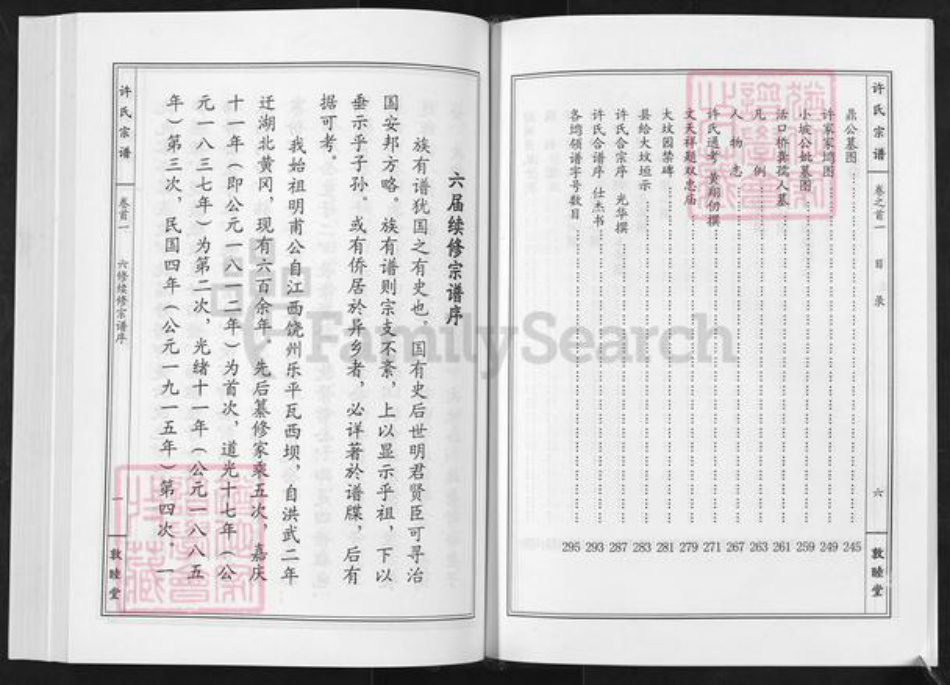 许氏宗谱
卷之首一
目录
六
敦睦堂
鼎公墓图 245
许家家塆图 249
小坡公妣墓图 259
活口桥龚孺人墓 261
凡例 263
人物志 267
许氏通考 黄翔勿撰 271
文天祥题双忠庙 279
大坟园禁碑 281
县给大坟垣示 283
许氏合宗序 光华撰 287
许氏合谱序 仕杰书 293
各塆领谱字号数目 295
六届续修宗谱序
族有谱犹国之有史也。国有史后世明君贤臣可寻治
国安邦方略。族有谱则宗支不紊，上以显示乎祖，下以
垂示乎子孙。或有侨居於异乡者，必详著於谱牒，后有
据可考。
我始祖明甫公自江西饶州乐平瓦西坝，自洪武二年
迁湖北黄冈，现有六百余年。先后纂修家乘五次，嘉庆
十一年（即公元一八一二年）为首次，道光十七年（公
元一八三七年）为第二次，光绪十一年（公元一八八五
年）第三次，民国四年（公元一九一五年）第四次，一
许氏宗谱
卷首一
六修续修宗谱序
一
敦睦堂
FamilySearch